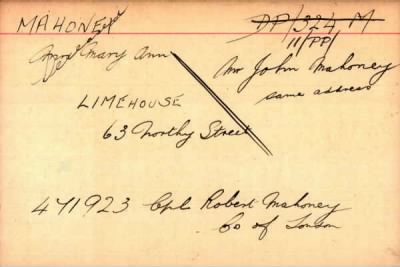 MAHONEY
DP/324 M
11/PP/
Mrs Mary Ann
Mr John Mahoney
same address
LIMEHOUSE
63 Northy Street
471923 Cpl Robert Mahoney
Co of London